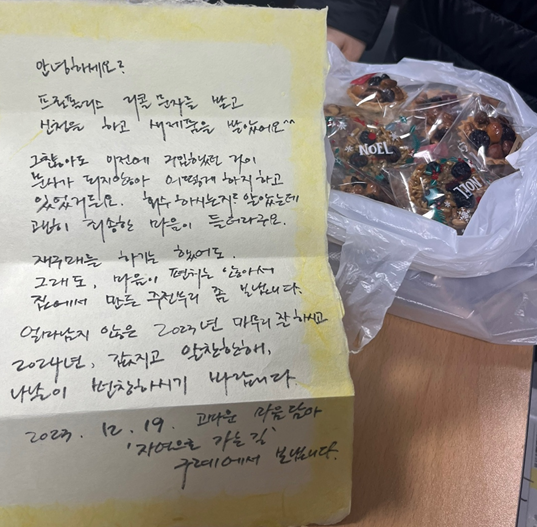 안녕하세요?
프릳품리스 리콜 문자를 받고
신청을 하고 새제품을 받았어요^^
그렇잖아도 이전에 구입했던 것이
분사가 되지않아 어떻게 하지 하고
있었거든요. 회수 하시는지도 알았는데
괜히 죄송한 마음이 들더라구요.
재구매를 하기는 했어도.
그래도, 마음이 편치는 않아서
집에서 만든 주전부리 좀 보냅니다.
얼마남지 않은 2023년 마무리 잘 하시고
2024년, 값지고 알찬한해,
나날이 번창하시기 바랍니다.
2023. 12. 19. 고마운 마음담아
'자연으로 가는 길'
구례에서 보냅니다.
NOEL
NOEL